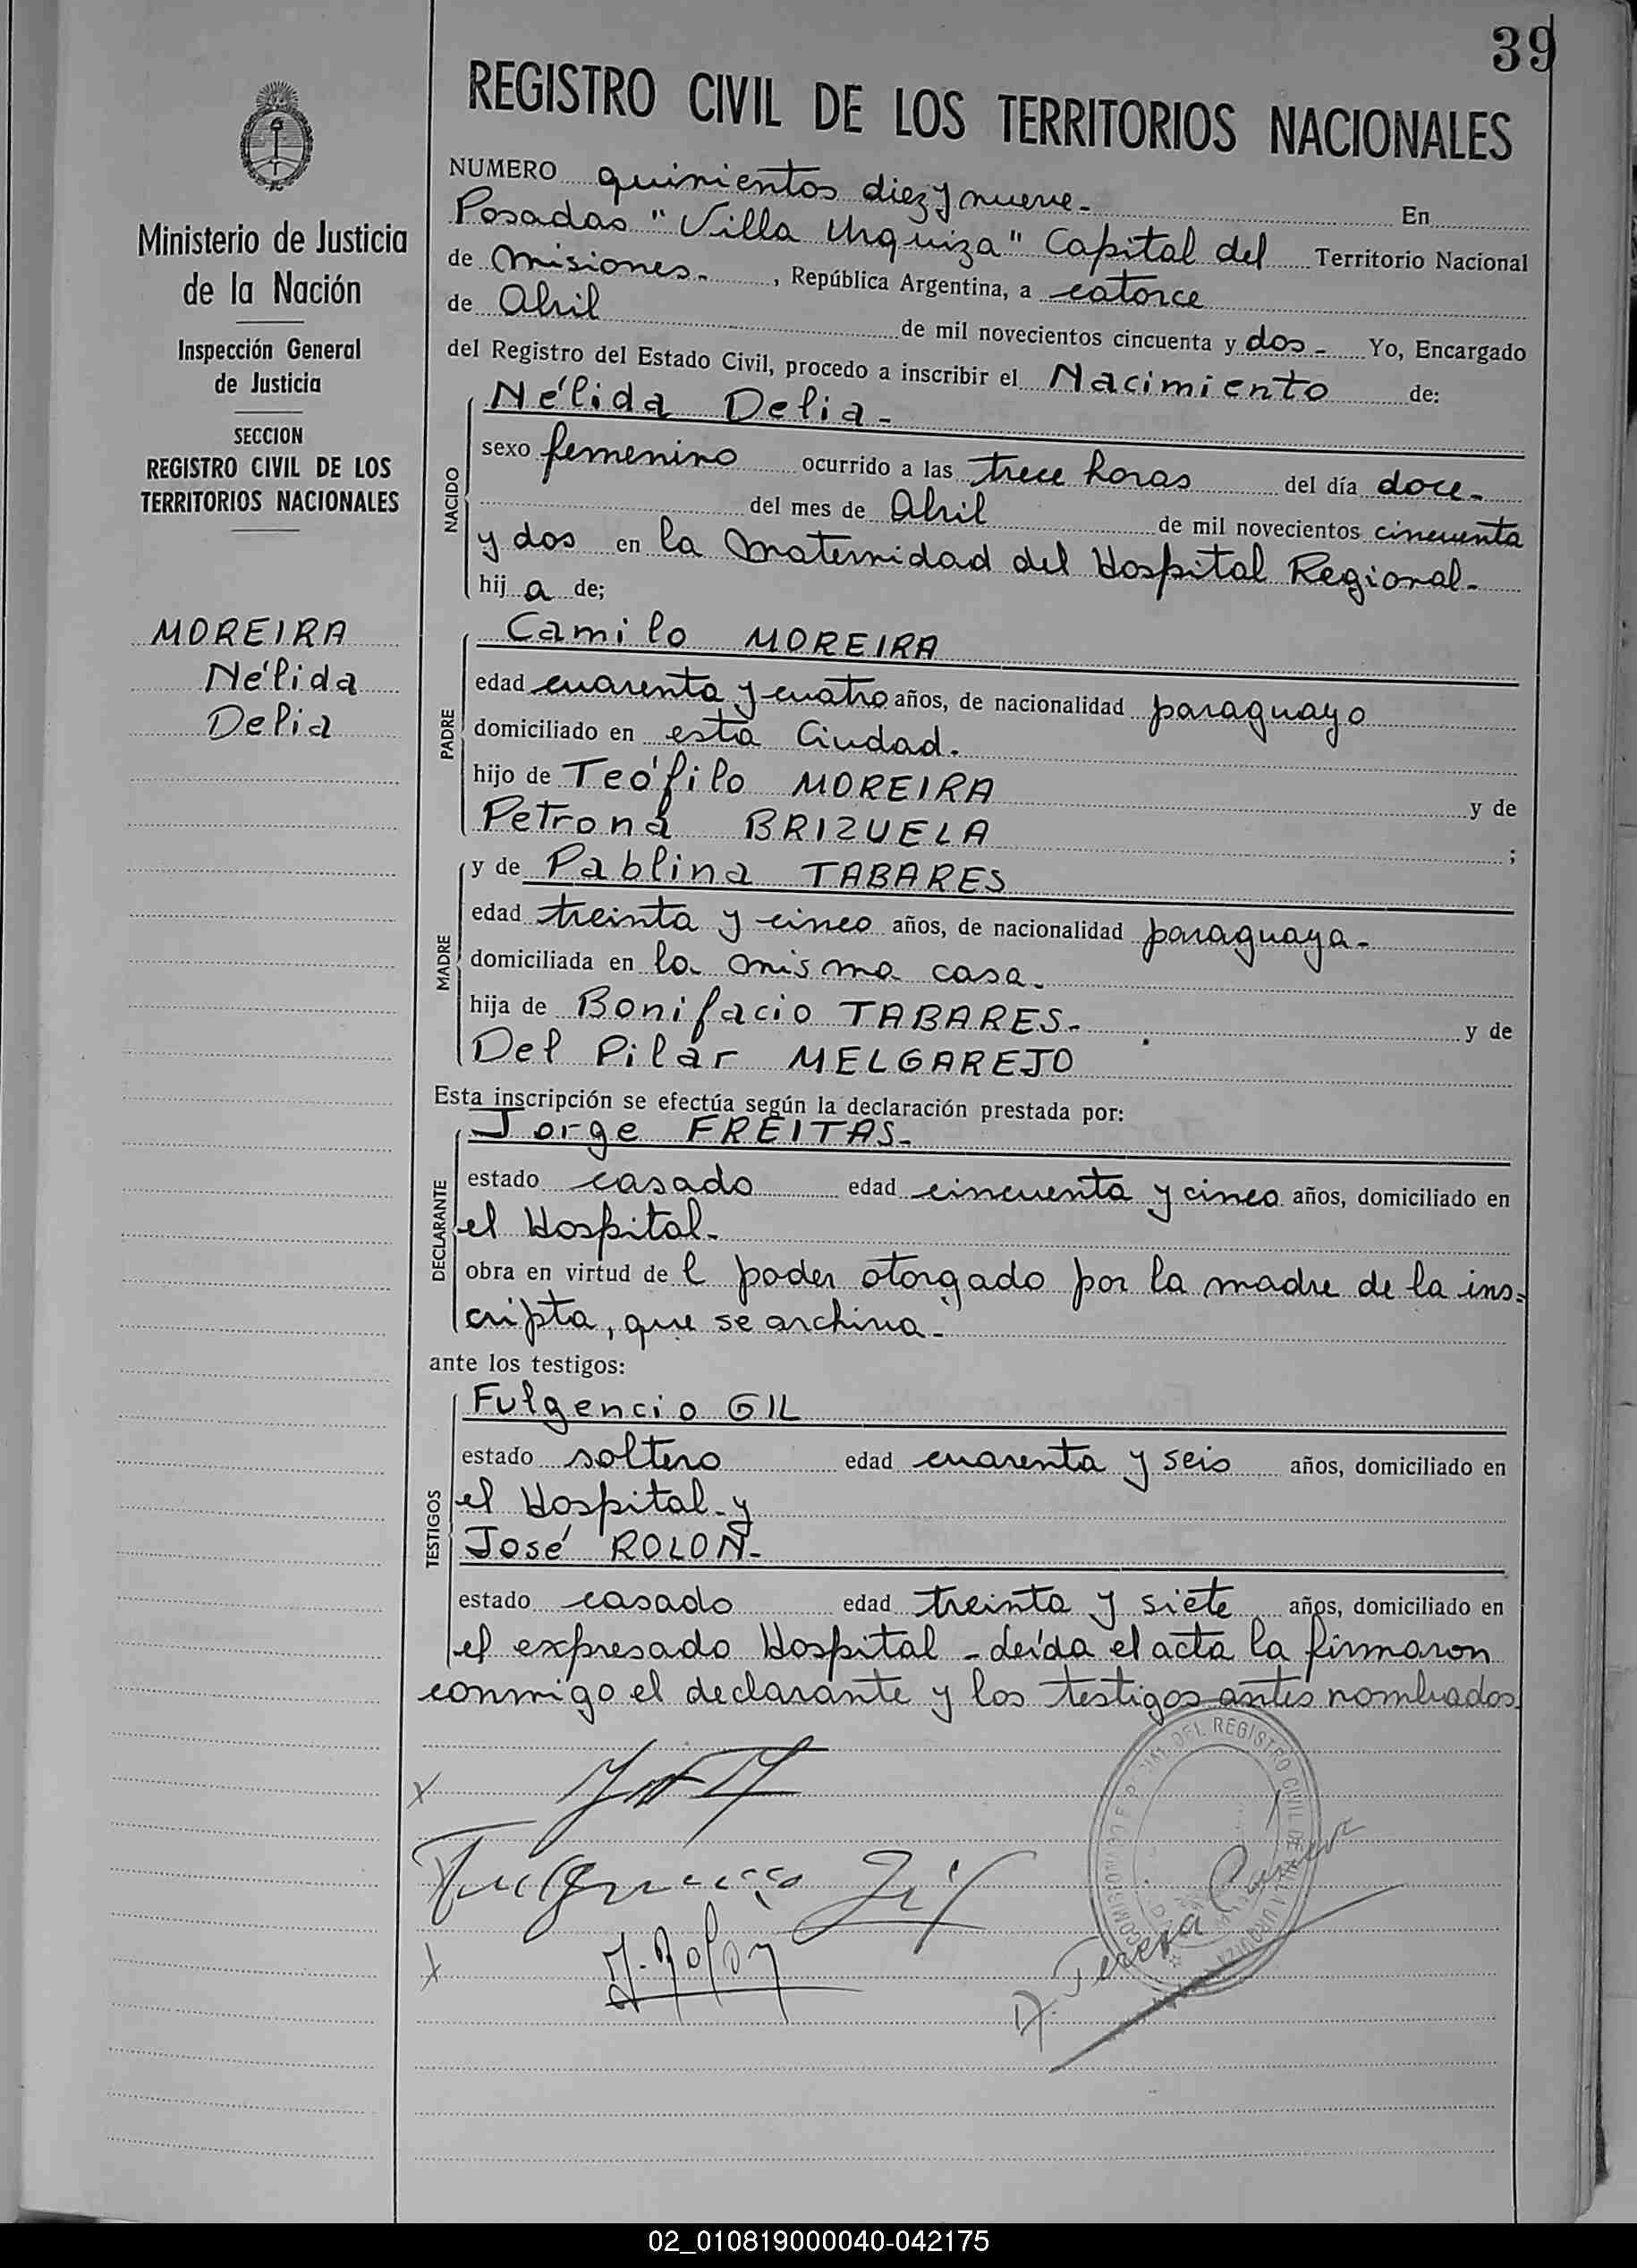 39
REGISTRO CIVIL DE LOS TERRITORIOS NACIONALES
Ministerio de Justicia
de la Nación
Inspección General
de Justicia
SECCION
REGISTRO CIVIL DE LOS
TERRITORIOS NACIONALES
MOREIRA
Nélida
Delia
NUMERO quinientos diez y nueve.- En
Posadas "Villa Urquiza" Capital del Territorio Nacional
de Misiones.- , República Argentina, a catorce
de Abril de mil novecientos cincuenta y dos - Yo, Encargado
del Registro del Estado Civil, procedo a inscribir el Nacimiento de:
NACIDO
Nélida Delia-
sexo femenino ocurrido a las trece horas del día doce-
del mes de Abril de mil novecientos cincuenta
y dos en la Maternidad del Hospital Regional-
hij a de;
PADRE
Camilo MOREIRA
edad cuarenta y cuatro años, de nacionalidad paraguayo
domiciliado en esta Ciudad.
hijo de Teófilo MOREIRA y de
Petrona BRIZUELA ;
MADRE
y de Pablina TABARES
edad treinta y cinco años, de nacionalidad paraguaya-
domiciliada en la misma casa-
hija de Bonifacio TABARES- y de
Del Pilar MELGAREJO
Esta inscripción se efectúa según la declaración prestada por:
DECLARANTE
Jorge FREITAS-
estado casado edad cincuenta y cinco años, domiciliado en
el Hospital-
obra en virtud de l poder otorgado por la madre de la ins-
cripta, que se archiva-
ante los testigos:
TESTIGOS
Fulgencio GIL
estado soltero edad cuarenta y seis años, domiciliado en
el Hospital- y
José ROLON-
estado casado edad treinta y siete años, domiciliado en
el expresado Hospital - Leída el acta la firmaron
conmigo el declarante y los testigos antes nombrados
DEL REGISTRO CIVIL DE VILLA URQUIZA
Fulgencio Gil
J. Rolon
Teresa
02_010819000040-042175